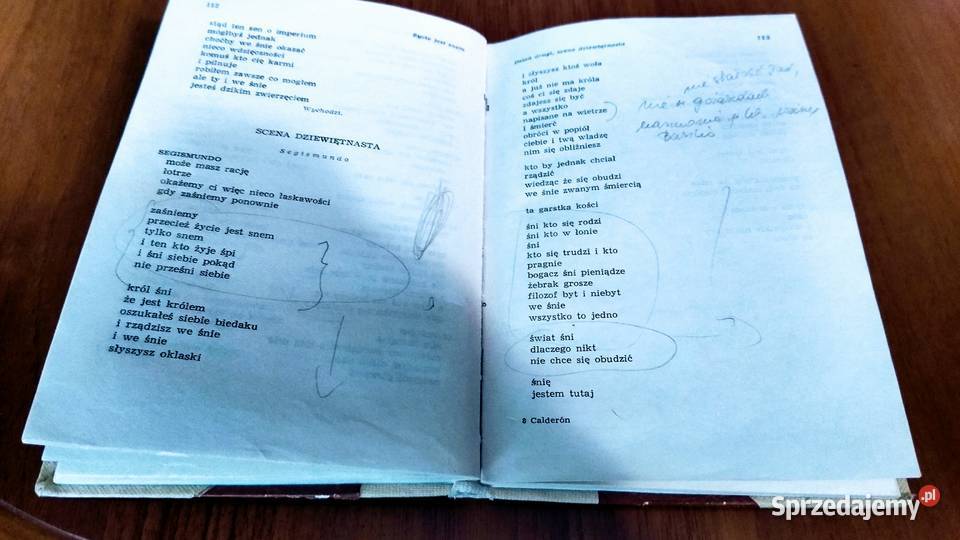 112
Życie jest snem
stąd ten sen o imperium
mógłbyś jednak
choćby we śnie okazać
nieco wdzięczności
komuś kto cię karmi
i pilnuje
robiłem zawsze co mogłem
ale ty i we śnie
jesteś dzikim zwierzęciem
Wychodzi.
SCENA DZIEWIĘTNASTA
Segismundo
SEGISMUNDO
może masz rację
łotrze
okażemy ci więc nieco łaskawości
gdy zaśniemy ponownie
zaśniemy
przecież życie jest snem
tylko snem
i ten kto żyje śpi
i śni siebie pokąd
nie prześni siebie
król śni
że jest królem
oszukałeś siebie biedaku
i rządzisz we śnie
i we śnie
słyszysz oklaski
Dzień drugi, scena dziewiętnasta
113
i słyszysz ktoś woła
król
a już nie ma króla
coś ci się zdaje
zdajesz się być
a wszystko
napisane na wietrze
i śmierć
obróci w popiół
ciebie i twą władzę
nim się obliźniesz
kto by jednak chciał
rządzić
wiedząc że się obudzi
we śnie zwanym śmiercią
ta garstka kości
śni kto się rodzi
śni kto w łonie
śni
kto się trudzi i kto
pragnie
bogacz śni pieniądze
żebrak grosze
filozof byt i niebyt
we śnie
wszystko to jedno
świat śni
dlaczego nikt
nie chce się obudzić
śnię
jestem tutaj
8 Calderón
Sprzedajemy.pl